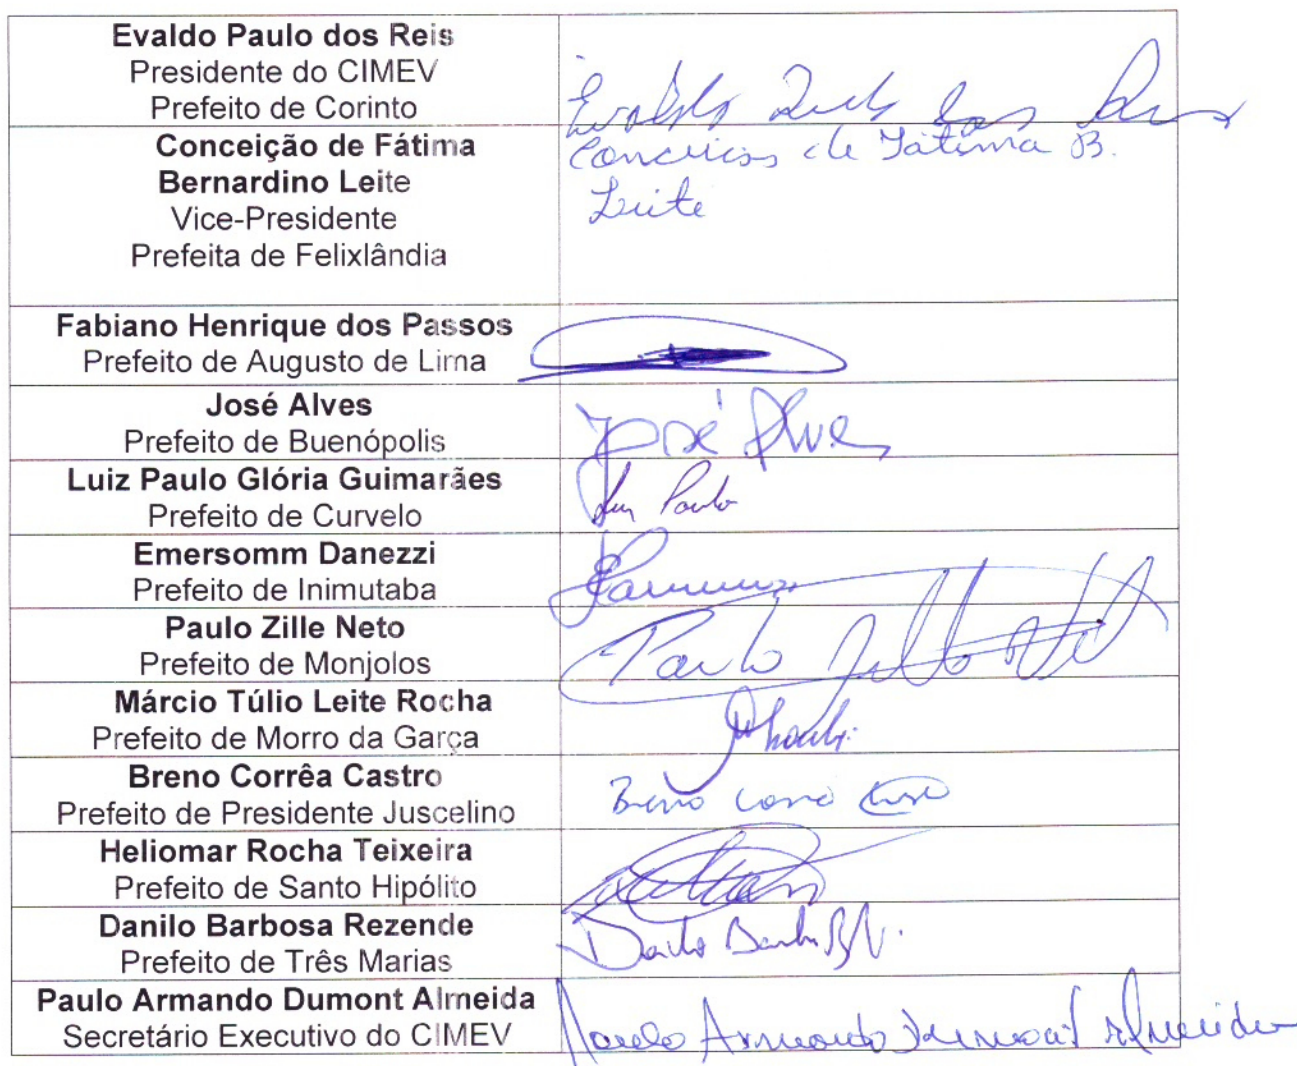 Evaldo Paulo dos Reis
Presidente do CIMEV
Prefeito de Corinto
Evaldo Paulo dos Reis
Conceição de Fátima
Bernardino Leite
Vice-Presidente
Prefeita de Felixlândia
Conceição de Fátima B.
Leite
Fabiano Henrique dos Passos
Prefeito de Augusto de Lima
José Alves
Prefeito de Buenópolis
José Alves
Luiz Paulo Glória Guimarães
Prefeito de Curvelo
Luiz Paulo
Emersomm Danezzi
Prefeito de Inimutaba
Paulo Zille Neto
Prefeito de Monjolos
Paulo
Márcio Túlio Leite Rocha
Prefeito de Morro da Garça
Breno Corrêa Castro
Prefeito de Presidente Juscelino
Breno Corrêa Castro
Heliomar Rocha Teixeira
Prefeito de Santo Hipólito
Danilo Barbosa Rezende
Prefeito de Três Marias
Danilo
Paulo Armando Dumont Almeida
Secretário Executivo do CIMEV
Paulo Armando Dumont Almeida